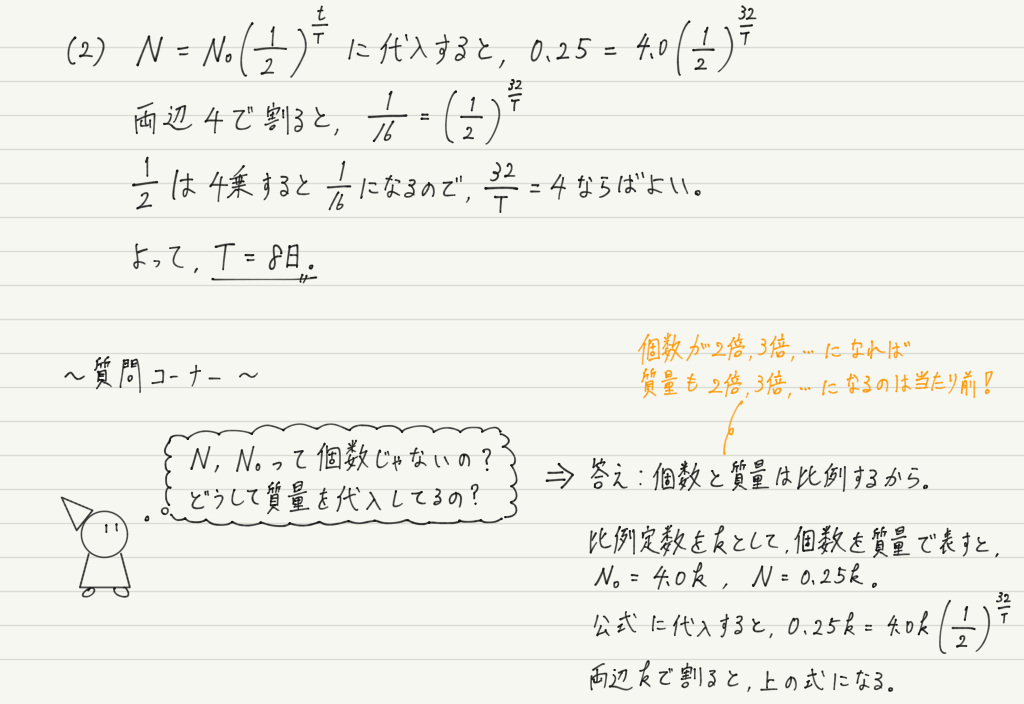 (2) N = N₀(1/2)^(t/T) に代入すると, 0.25 = 4.0(1/2)^(32/T)
両辺 4で割ると, 1/16 = (1/2)^(32/T)
1/2 は 4乗すると 1/16 になるので, 32/T = 4 ならばよい。
よって, T = 8日。
〜質問コーナー〜
個数が2倍, 3倍, … になれば
質量も2倍, 3倍, … になるのは当たり前!
N, N₀って個数じゃないの?
どうして質量を代入してるの?
⇒ 答え:個数と質量は比例するから。
比例定数をkとして, 個数を質量で表すと,
N₀ = 4.0k, N = 0.25k。
公式に代入すると, 0.25k = 4.0k(1/2)^(32/T)
両辺kで割ると, 上の式になる。